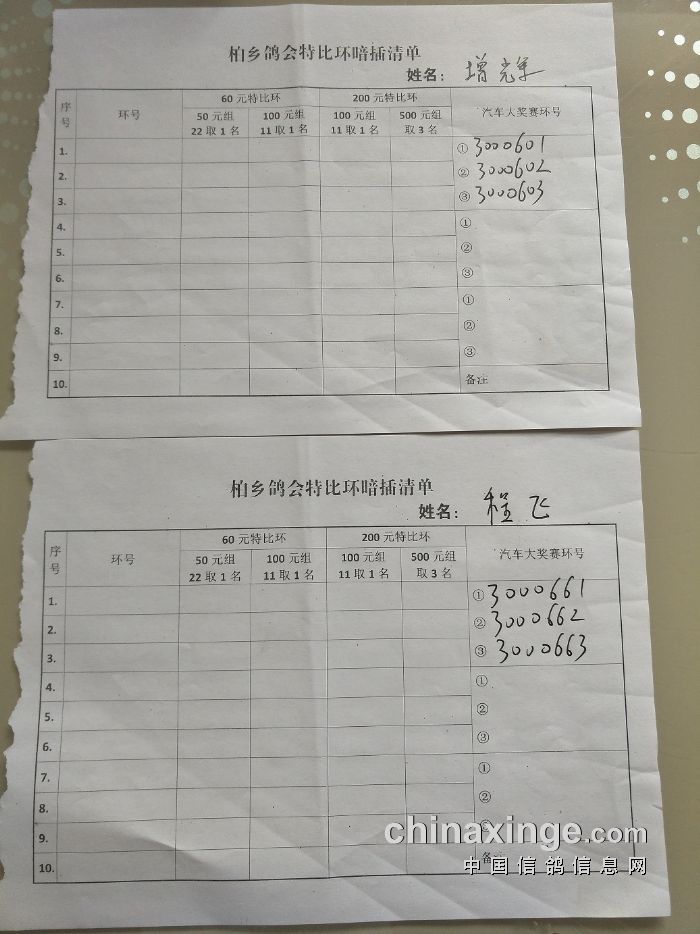 柏乡鸽会特比环暗插清单
姓名: 增光军
序号 环号 60元特比环 200元特比环 汽车大奖赛环号
50元组 22取1名 100元组 11取1名 100元组 11取1名 500元组 取3名
1. ① 3000601
2. ② 3000602
3. ③ 3000603
4. ①
5. ②
6. ③
7. ①
8. ②
9. ③
10. 备注
柏乡鸽会特比环暗插清单
姓名: 程飞
序号 环号 60元特比环 200元特比环 汽车大奖赛环号
50元组 22取1名 100元组 11取1名 100元组 11取1名 500元组 取3名
1. ① 3000661
2. ② 3000662
3. ③ 3000663
4. ①
5. ②
6. ③
7. ①
8. ②
9. ③
10. 备注
chinaxinge.com
中国信鸽信息网